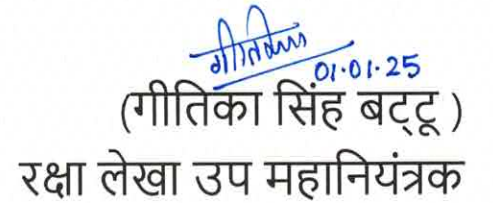 गीतिका
01.01.25
(गीतिका सिंह बट्टू )
रक्षा लेखा उप महानियंत्रक